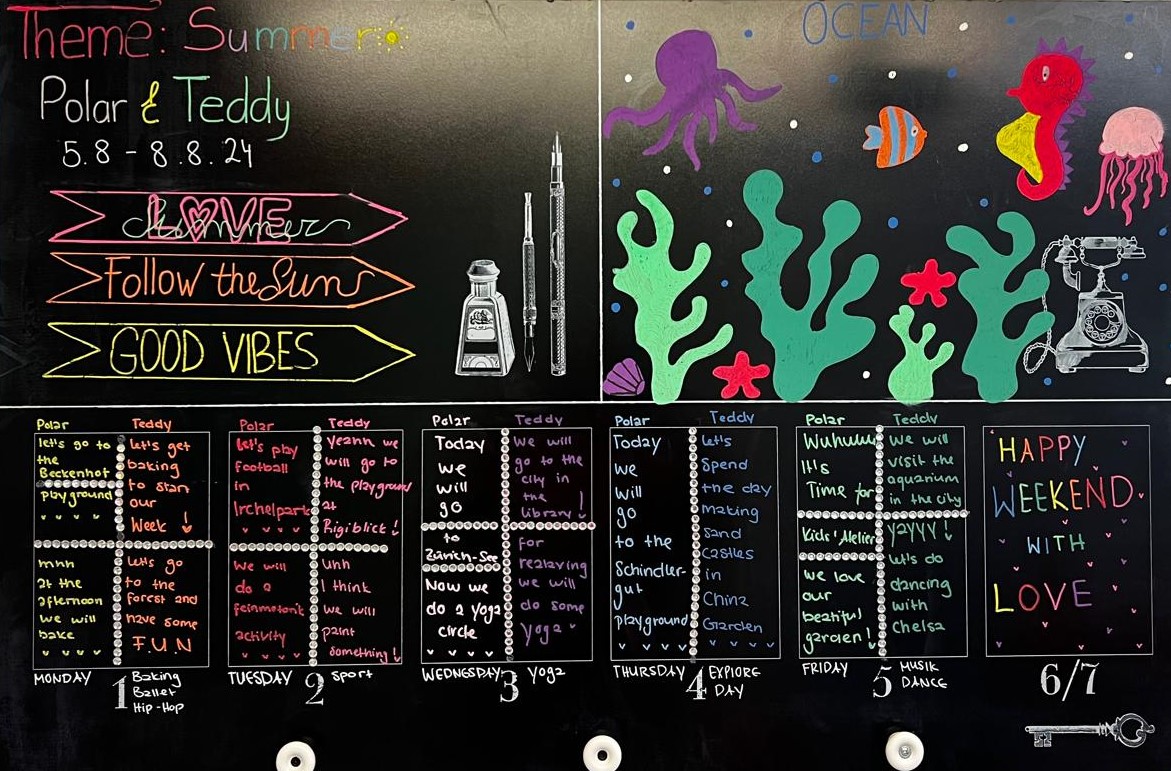 Theme: Summer
Polar & Teddy
5.8 - 8.8.24
LOVE
Summer
Follow the Sun
GOOD VIBES
OCEAN
Polar
let's go to
the
Beckenhof
playground
mhh
at the
afternoon
we will
bake
Teddy
let's get
baking
to start
our
Week !
let's go
to the
forest and
have some
F.U.N
MONDAY
1
Baking
Ballet
Hip-Hop
Polar
let's play
football
in
Irchelpark
we will
do a
feinmotorik
activity
Teddy
yeahh we
will go to
the playground
at
Rigiblick !
uhh
I think
we will
paint
something !
TUESDAY
2
Sport
Polar
Today
we
will
go
to
Zürich-See
Now we
do a yoga
circle
Teddy
we will
go to the
city in
the
library !
for
relaxing
we will
do some
yoga
WEDNESDAY
3
yoga
Polar
Today
we
will
go
to the
Schindler-
gut
playground
Teddy
let's
Spend
the day
making
sand
castles
in
China
Garden
THURSDAY
4
EXPLORE
DAY
Polar
Wuhuuu
It's
Time for
Kids' Atelier
we love
our
beatiful
garden !
Teddy
we will
visit the
aquarium
in the city
YAYYY !
let's do
dancing
with
Chelsa
FRIDAY
5
MUSIK
DANCE
HAPPY
WEEKEND
WITH
LOVE
6/7